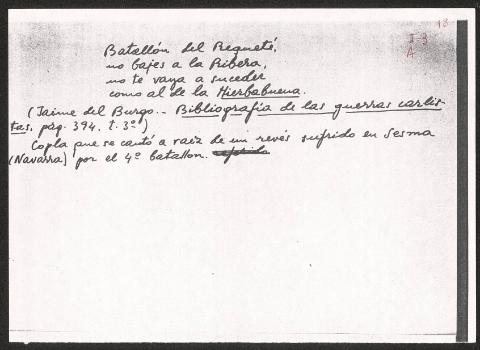 18
I-3
A
Batallón del Requeté,
no bajes a la Ribera,
no te vaya a suceder
como al de la Hierbabuena.
(Jaime del Burgo.- Bibliografía de las guerras carlis-
tas, pág. 394. t. 3º)
Copla que se cantó a raiz de un revés sufrido en Sesma
(Navarra) por el 4º batallon.